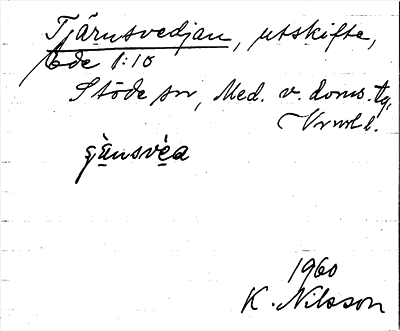 Tjärnsvedjan, utskifte,
Ede 1:10
Stöde sn, Med. v. doms. tg,
Vnrl l.
gànsvèa
1960
K. Nilsson